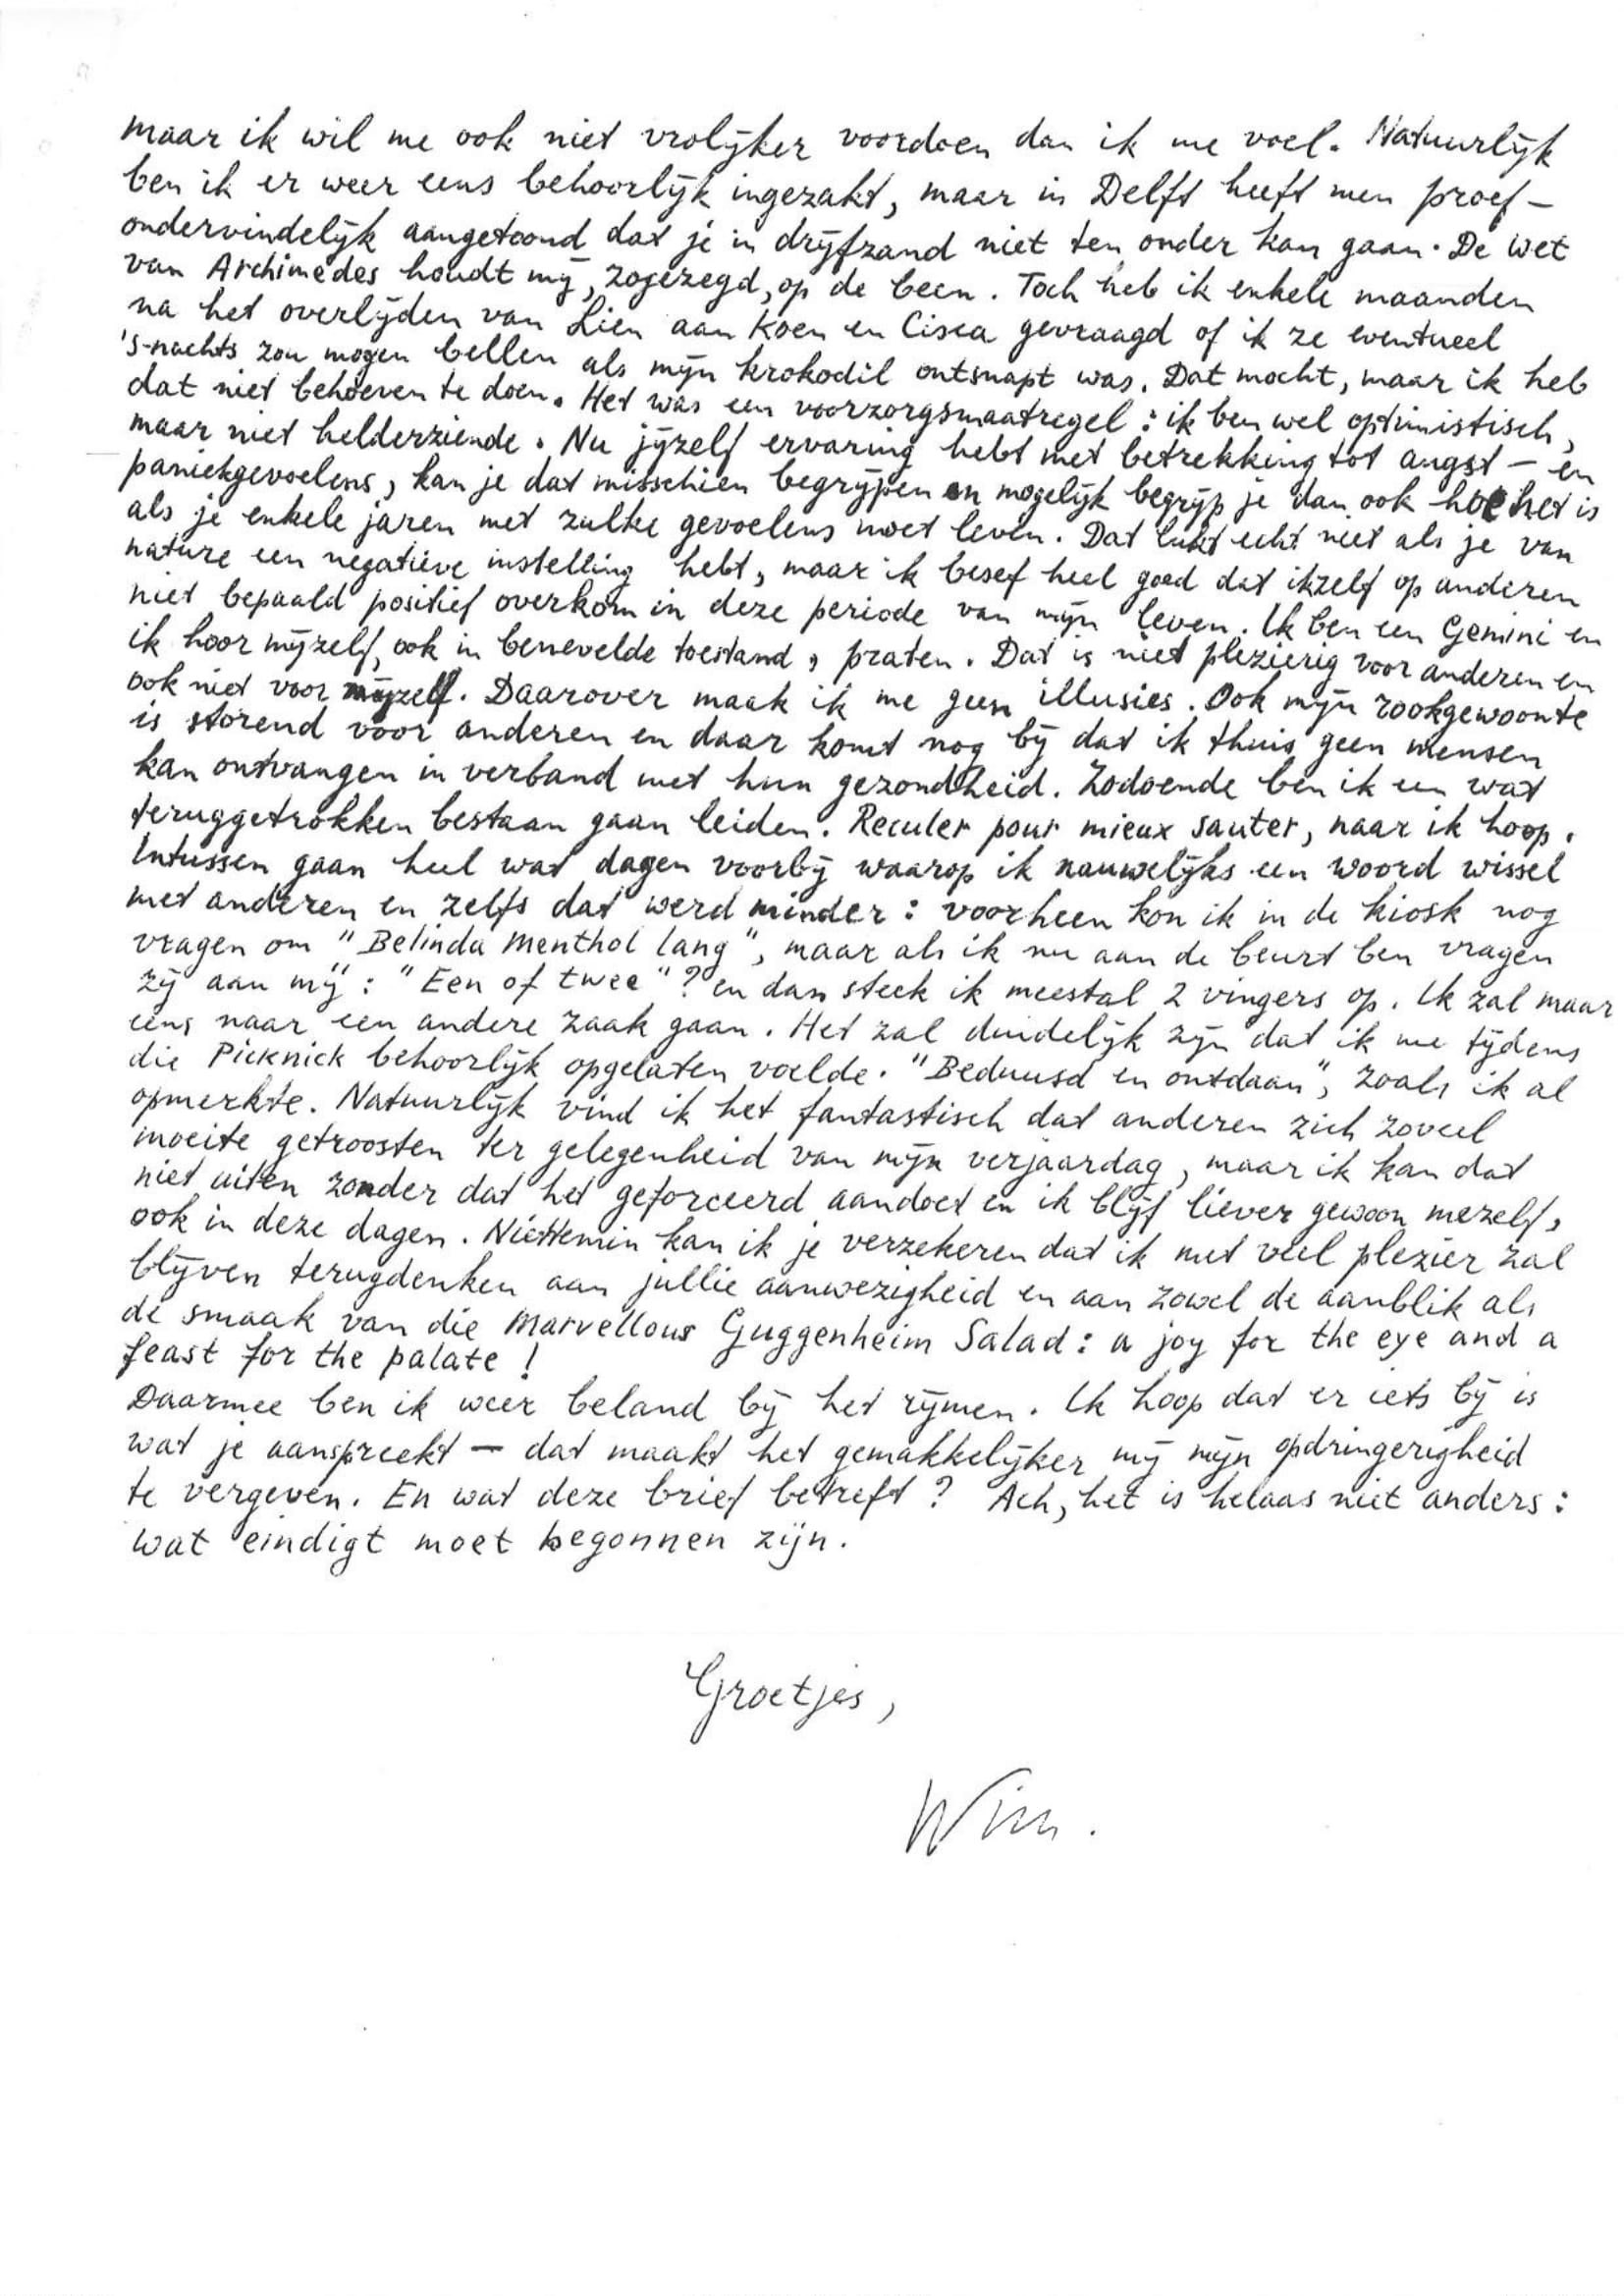 maar ik wil me ook niet vrolijker voordoen dan ik me voel. Natuurlijk
ben ik er weer eens behoorlijk ingezakt, maar in Delft heeft men proef-
ondervindelijk aangetoond dat je in drijfzand niet ten onder kan gaan. De wet
van Archimedes houdt mij, zogezegd, op de been. Toch heb ik enkele maanden
na het overlijden van Lien aan Koen en Cisca gevraagd of ik ze eventueel
's-nachts zou mogen bellen als mijn krokodil ontsnapt was. Dat mocht, maar ik heb
dat niet behoeven te doen. Het was een voorzorgsmaatregel: ik ben wel optimistisch,
maar niet helderziende. Nu jijzelf ervaring hebt met betrekking tot angst- en
paniekgevoelens, kan je dat misschien begrijpen en mogelijk begrijp je dan ook hoe het is
als je enkele jaren met zulke gevoelens moet leven. Dat lukt echt niet als je van
nature een negatieve instelling hebt, maar ik besef heel goed dat ikzelf op anderen
niet bepaald positief overkom in deze periode van mijn leven. Ik ben een Gemini en
ik hoor mijzelf, ook in benevelde toestand, praten. Dat is niet plezierig voor anderen en
ook niet voor mijzelf. Daarover maak ik me geen illusies. Ook mijn rookgewoonte
is storend voor anderen en daar komt nog bij dat ik thuis geen mensen
kan ontvangen in verband met hun gezondheid. Zodoende ben ik een wat
teruggetrokken bestaan gaan leiden. Reculer pour mieux sauter, naar ik hoop.
Intussen gaan heel wat dagen voorbij waarop ik nauwelijks een woord wissel
met anderen en zelfs dat werd minder: voorheen kon ik in de kiosk nog
vragen om "Belinda Menthol lang", maar als ik nu aan de beurt ben vragen
zij aan mij: "Een of twee"? en dan steek ik meestal 2 vingers op. Ik zal maar
eens naar een andere zaak gaan. Het zal duidelijk zijn dat ik me tijdens
die Picknick behoorlijk opgelaten voelde. "Beduusd en ontdaan", zoals ik al
opmerkte. Natuurlijk vind ik het fantastisch dat anderen zich zoveel
moeite getroosten ter gelegenheid van mijn verjaardag, maar ik kan dat
niet uiten zonder dat het geforceerd aandoet en ik blijf liever gewoon mezelf,
ook in deze dagen. Niettemin kan ik je verzekeren dat ik met veel plezier zal
blijven terugdenken aan jullie aanwezigheid en aan zowel de aanblik als
de smaak van die Marvellous Guggenheim Salad: a joy for the eye and a
feast for the palate!
Daarmee ben ik weer beland bij het rijmen. Ik hoop dat er iets bij is
wat je aanspreekt - dat maakt het gemakkelijker mij mijn opdringerigheid
te vergeven. En wat deze brief betreft? Ach, het is helaas niet anders:
wat eindigt moet begonnen zijn.
Groetjes,
Wim.